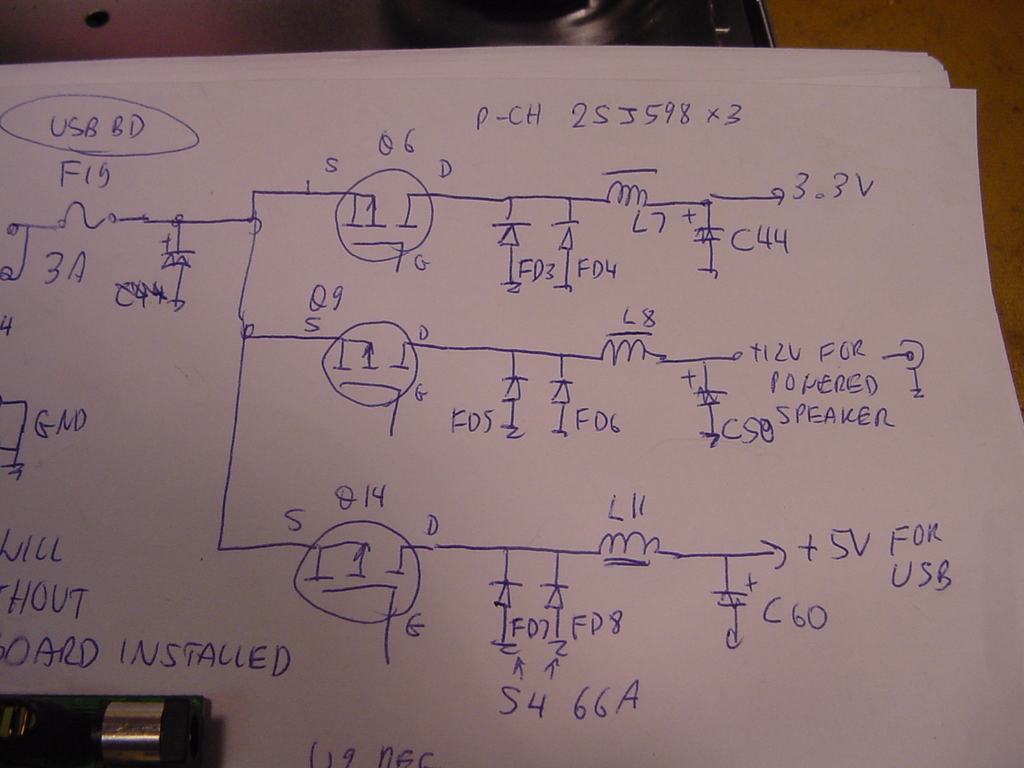 USB BD
P-CH 2SJ598 x3
F19
S
Q6
D
3.3V
3A
G
L7
C44
C44
FD3
FD4
Q9
S
D
L8
+12V FOR
POWERED
SPEAKER
G
FD5
FD6
C50
4
GND
Q14
S
D
L11
+5V FOR
USB
G
FD7
FD8
C60
S4 66A
WILL
THOUT
BOARD INSTALLED